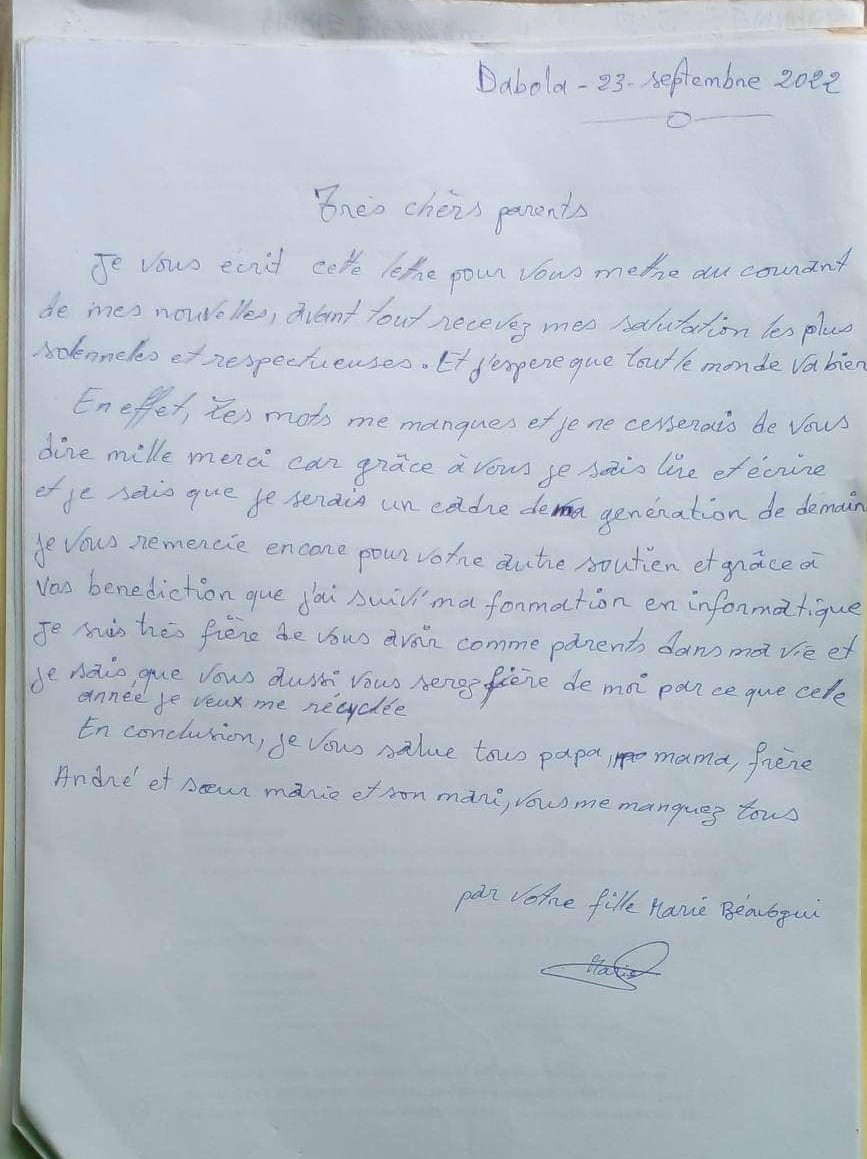 Dabola - 23 - septembre 2022
Très chèrs parents
Je vous ecrit cette lettre pour vous mettre au courant
de mes nouvelles, avant tout recevez mes salutation les plus
solennelles et respectueuses. Et j'espere que tout le monde va bien
En effet, les mots me manques et je ne cesserais de vous
dire mille merci car grâce à vous je sais lire et écrire
et je sais que je serais un cadre de ma génération de demain
je vous remercie encore pour votre autre soutien et grâce à
vos benediction que j'ai suivi ma formation en informatique
Je suis très fière de vous avoir comme parents dans ma vie et
je sais que vous aussi vous serez fière de moi par ce que cete
année je veux me récyclée
En conclusion, je vous salue tous papa, mama, frère
André et sœur marie et son mari, vous me manquez tous
par votre fille Marie Béavogui
Marie